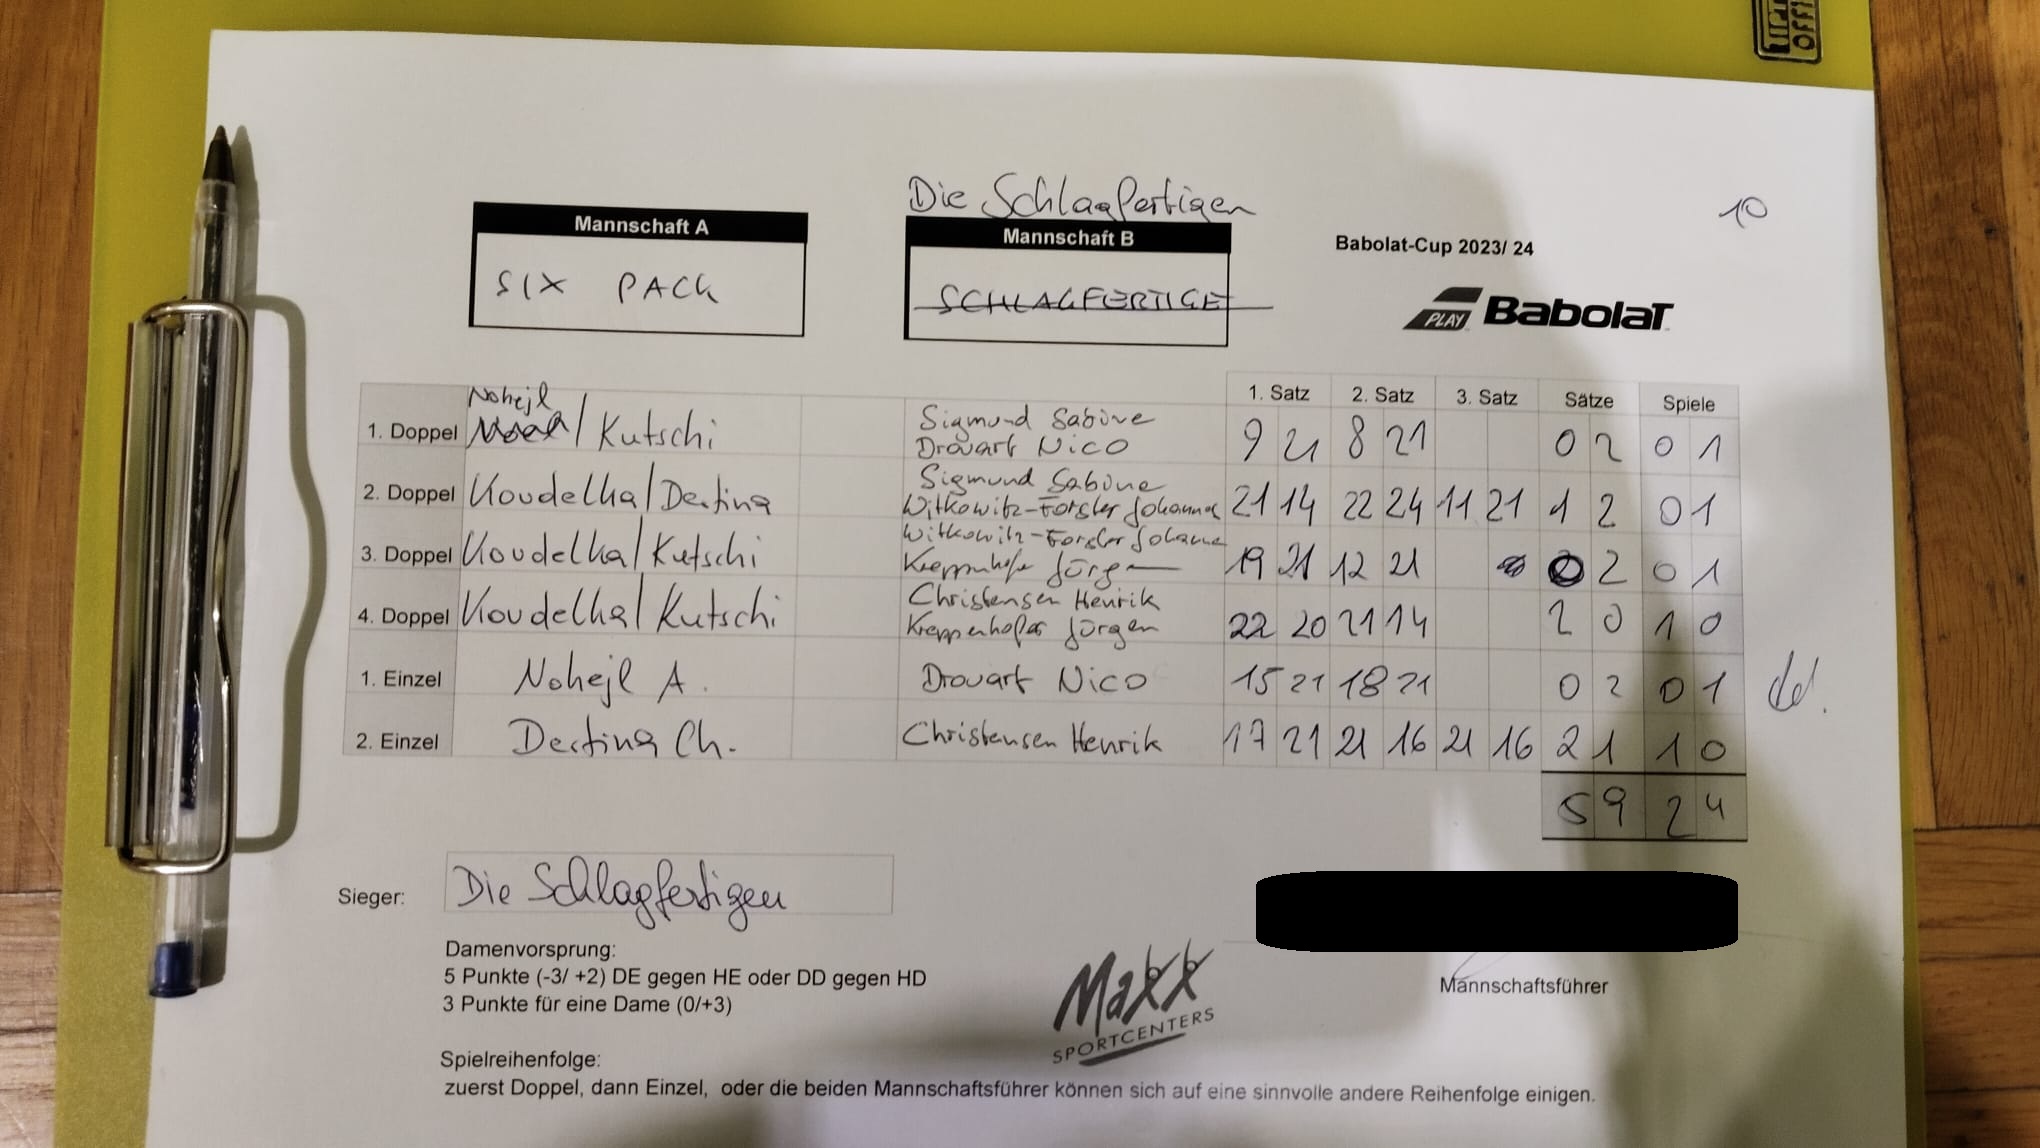 TIPTO
OFFI
Die Schlagfertigen
10
Mannschaft A
Mannschaft B
Babolat-Cup 2023/ 24
SIX PACK
SCHLAGFERTIGE
PLAY BabolaT
1. Satz 2. Satz 3. Satz Sätze Spiele
Nohejl
1. Doppel / Kutschi Sigmund Sabine 9 21 8 21 0 2 0 1
Drouart Nico
2. Doppel Koudelka / Dectina Sigmund Sabine 21 14 22 24 11 21 1 2 0 1
Witkowitz-Forster Johanna
3. Doppel Koudelka / Kutschi Witkowitz-Forster Johanna 19 21 12 21 0 2 0 1
Kreppenhofer Jürgen
4. Doppel Koudelka / Kutschi Christensen Henrik 22 20 21 14 2 0 1 0
Kreppenhofer Jürgen
1. Einzel Nohejl A. Drouart Nico 15 21 18 21 0 2 0 1
2. Einzel Dectina Ch. Christensen Henrik 17 21 21 16 21 16 2 1 1 0
5 9 2 4
Sieger: Die Schlagfertigen
Damenvorsprung:
5 Punkte (-3/ +2) DE gegen HE oder DD gegen HD
3 Punkte für eine Dame (0/+3)
Mannschaftsführer
Maxx
SPORTCENTERS
Spielreihenfolge:
zuerst Doppel, dann Einzel, oder die beiden Mannschaftsführer können sich auf eine sinnvolle andere Reihenfolge einigen.